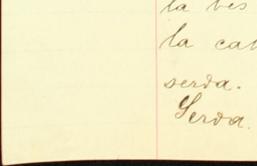 la bes
la cab
serda.
Serda.